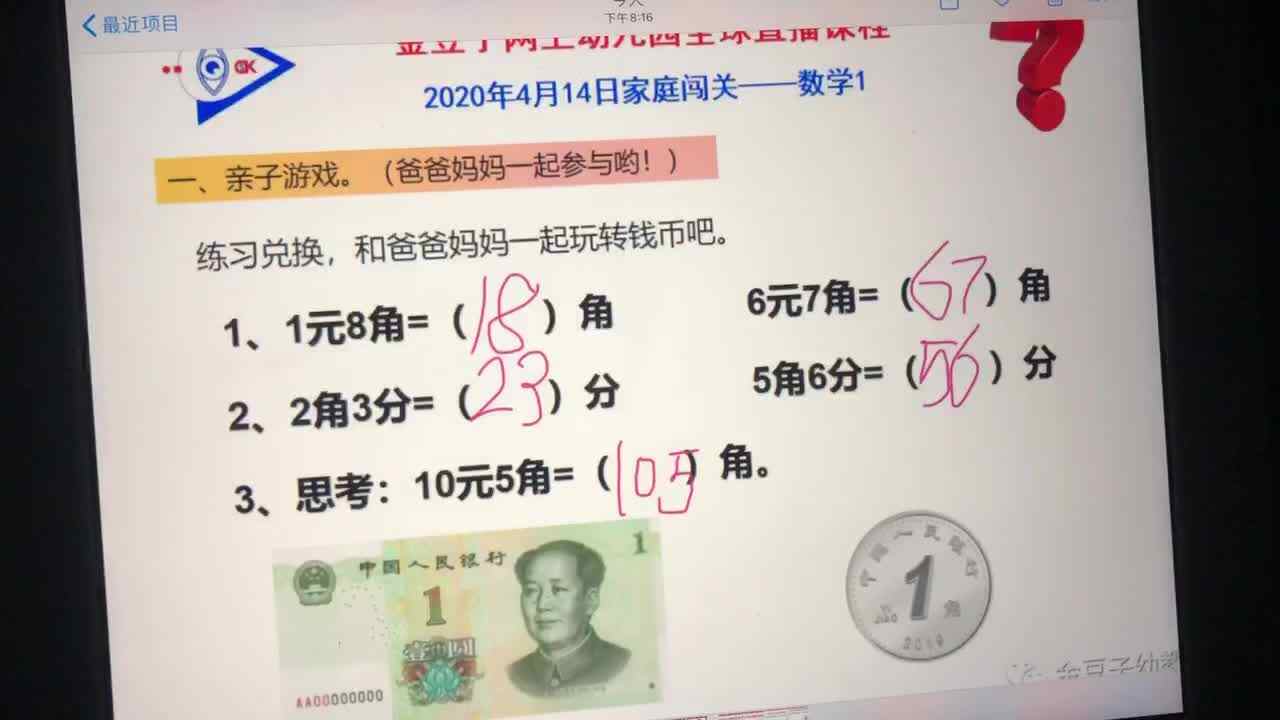 最近项目
今天
下午8:16
SK
金豆子网上幼儿园全球直播课程
2020年4月14日家庭闯关——数学1
一、亲子游戏。（爸爸妈妈一起参与哟！）
练习兑换，和爸爸妈妈一起玩转钱币吧。
1、1元8角=（18）角 6元7角=（67）角
2、2角3分=（23）分 5角6分=（56）分
3、思考：10元5角=（105）角。
中国人民银行
1
1
壹圆
AA00000000
中国人民银行
1
角
YI JIAO
2019